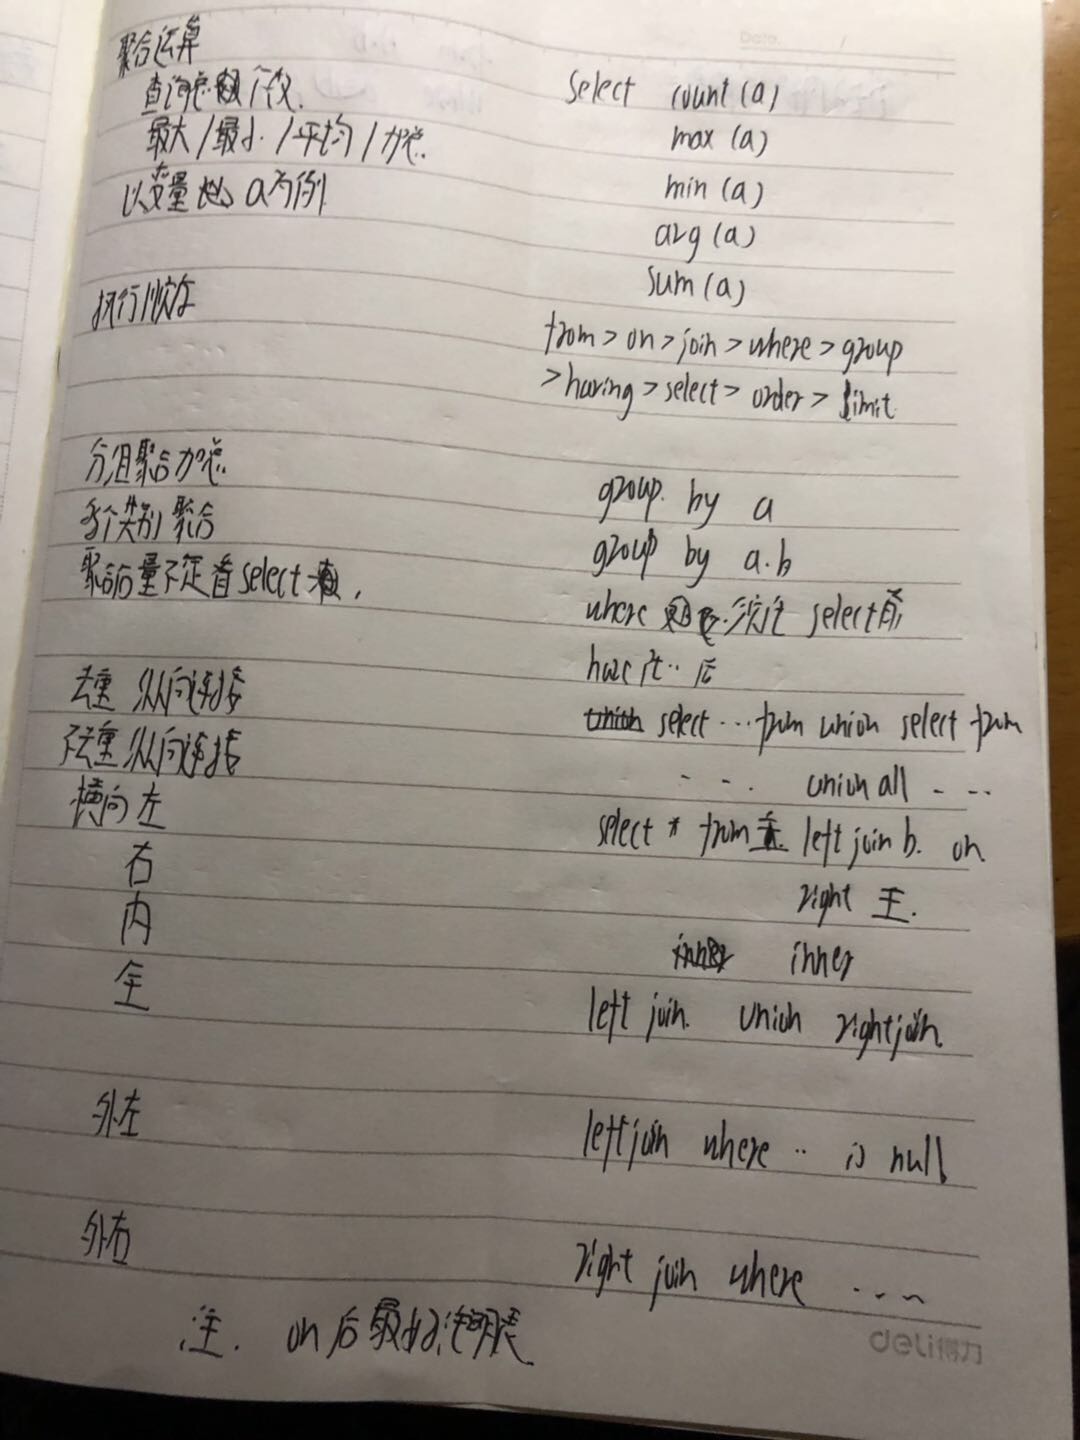 聚合运算
查询总行数. select count(a)
最大/最小/平均/加总. max (a)
以变量 a为例 min (a)
avg (a)
sum (a)
执行顺序
from > on > join > where > group
> having > select > order > limit
分组聚合加总. group by a
多个类别聚合 group by a.b
聚合 量不 看select , where 须在 select前
having 在.. 后
去重 纵向连接 select ... from union select from
不去重 纵向连接 - - . union all - - -
横向 左 select * from 主. left join b. on
右 right 主.
内 inner
全 left join. union right join.
外左 left join where .. is null
外右 right join where ....
注. on 后最好注明表.
deli得力
Date. /